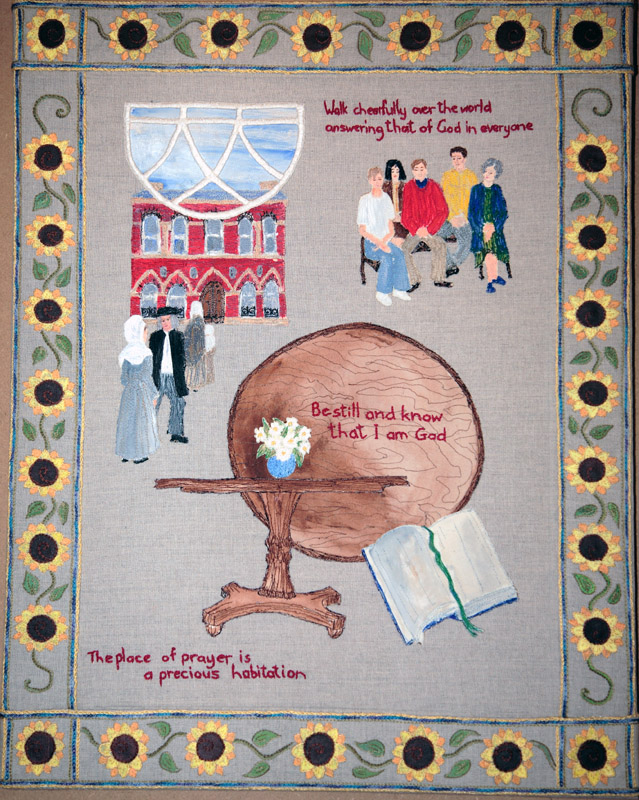 Walk cheerfully over the world
answering that of God in everyone
Be still and know
that I am God
The place of prayer is
a precious habitation